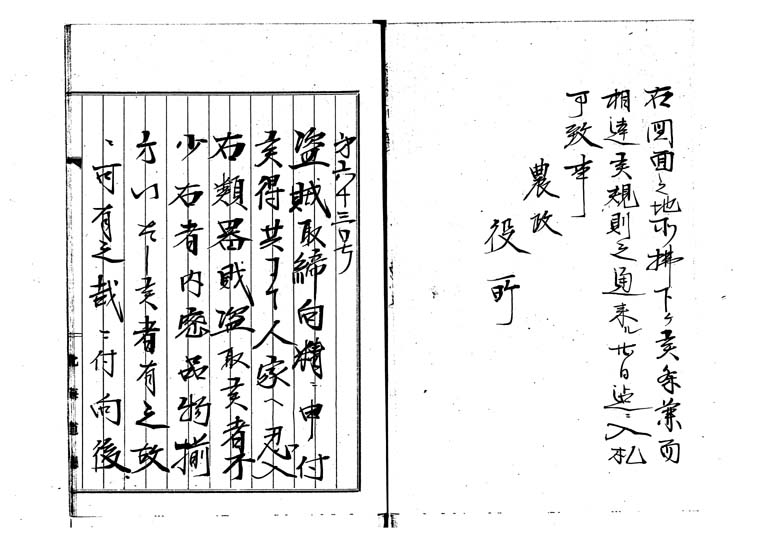 在図面之地所払下ケ候条兼而
相達候規則之通来ル廿日迄ニ入札
可致事
農政
役所
第六十三号
盗賊取締向精ニ申付
候得共
人家ヘ忍入
右類器財盗取候者不
少右者内密品物捌
方
候者有之故
ニ可有之哉ニ付向後
北海道